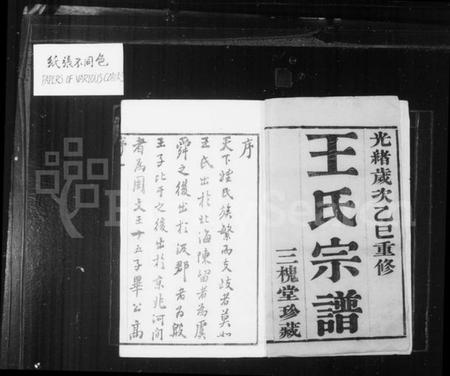 紙張不同色
PAPERS OF VARIOUS COLORS
光緒歲次乙巳重修
王氏宗譜
三槐堂珍藏
序
天下姓氏族繁而支岐者莫如
王氏出於北海陳留者為虞
舜之後出於汲郡者為殷
王子比干之後出於京兆河間
者為周文王十五子畢公高